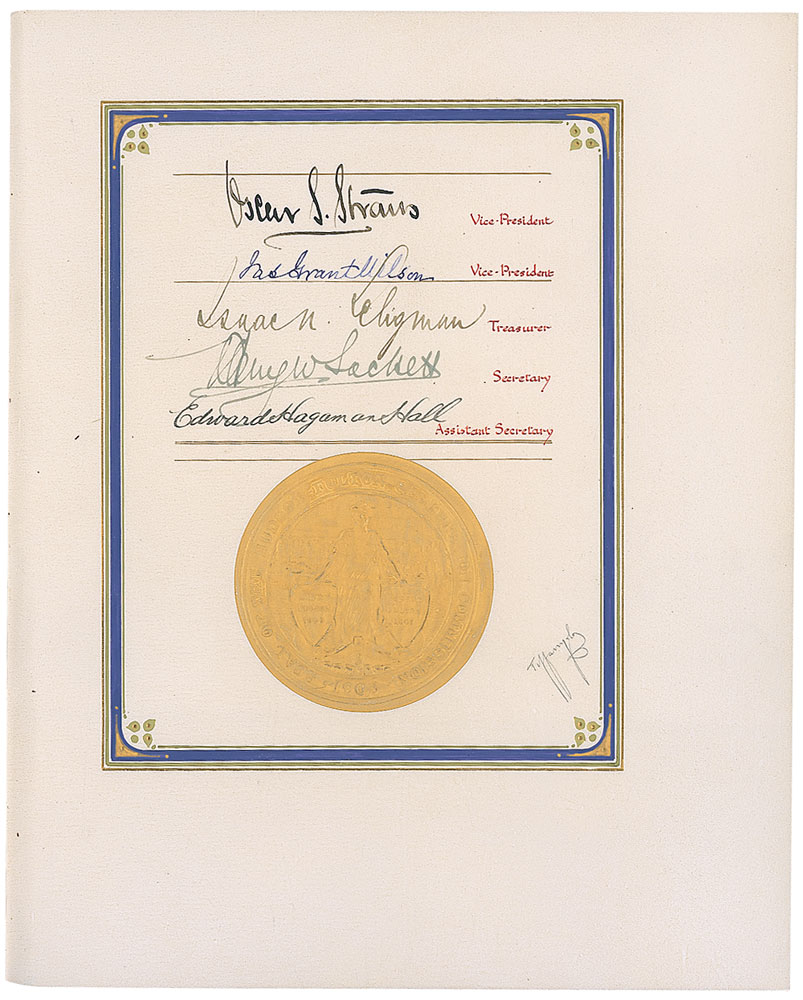 Oscar S. Straus Vice-President
Jas Grant Wilson Vice-President
Isaac N. Seligman Treasurer
Henry W. Sackett Secretary
Edward Hagaman Hall Assistant Secretary
Tiffany & Co